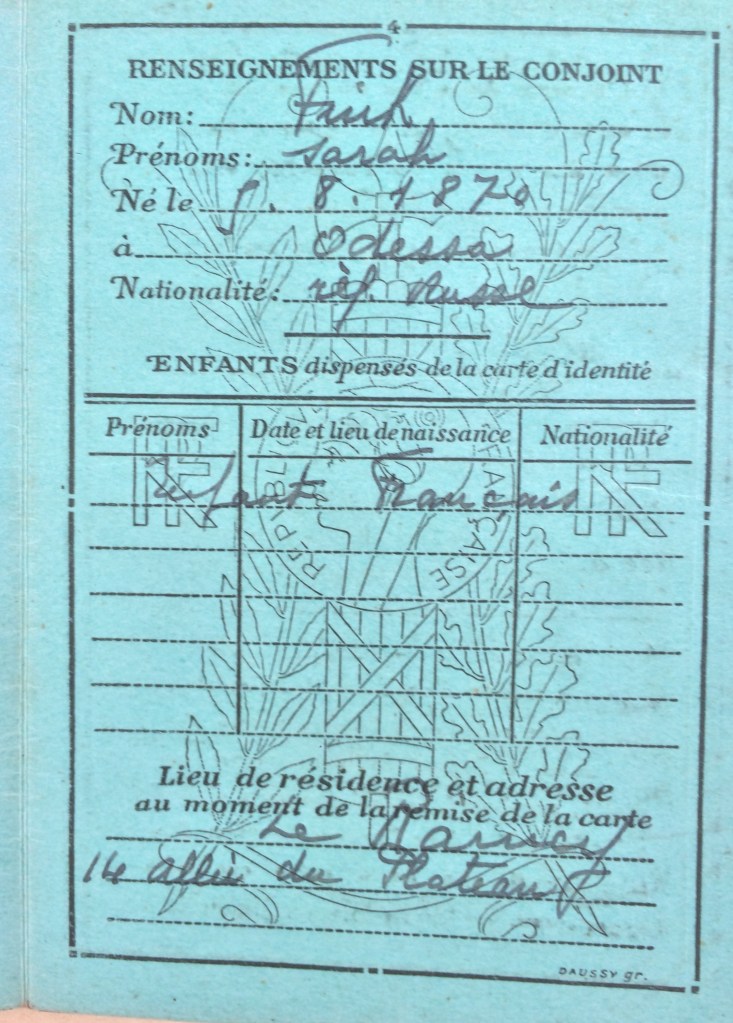 4
RENSEIGNEMENTS SUR LE CONJOINT
Nom: Fink
Prénoms: Sarah
Né le 5. 8. 1870
à Odessa
Nationalité: réf. Russe
ENFANTS dispensés de la carte d'identité
Prénoms Date et lieu de naissance Nationalité
RF RF
Enfant Francais
RÉPUBLIQUE FRANÇAISE
Lieu de résidence et adresse
au moment de la remise de la carte
Le Raincy
14 allée du Plateau
DAUSSY gr.